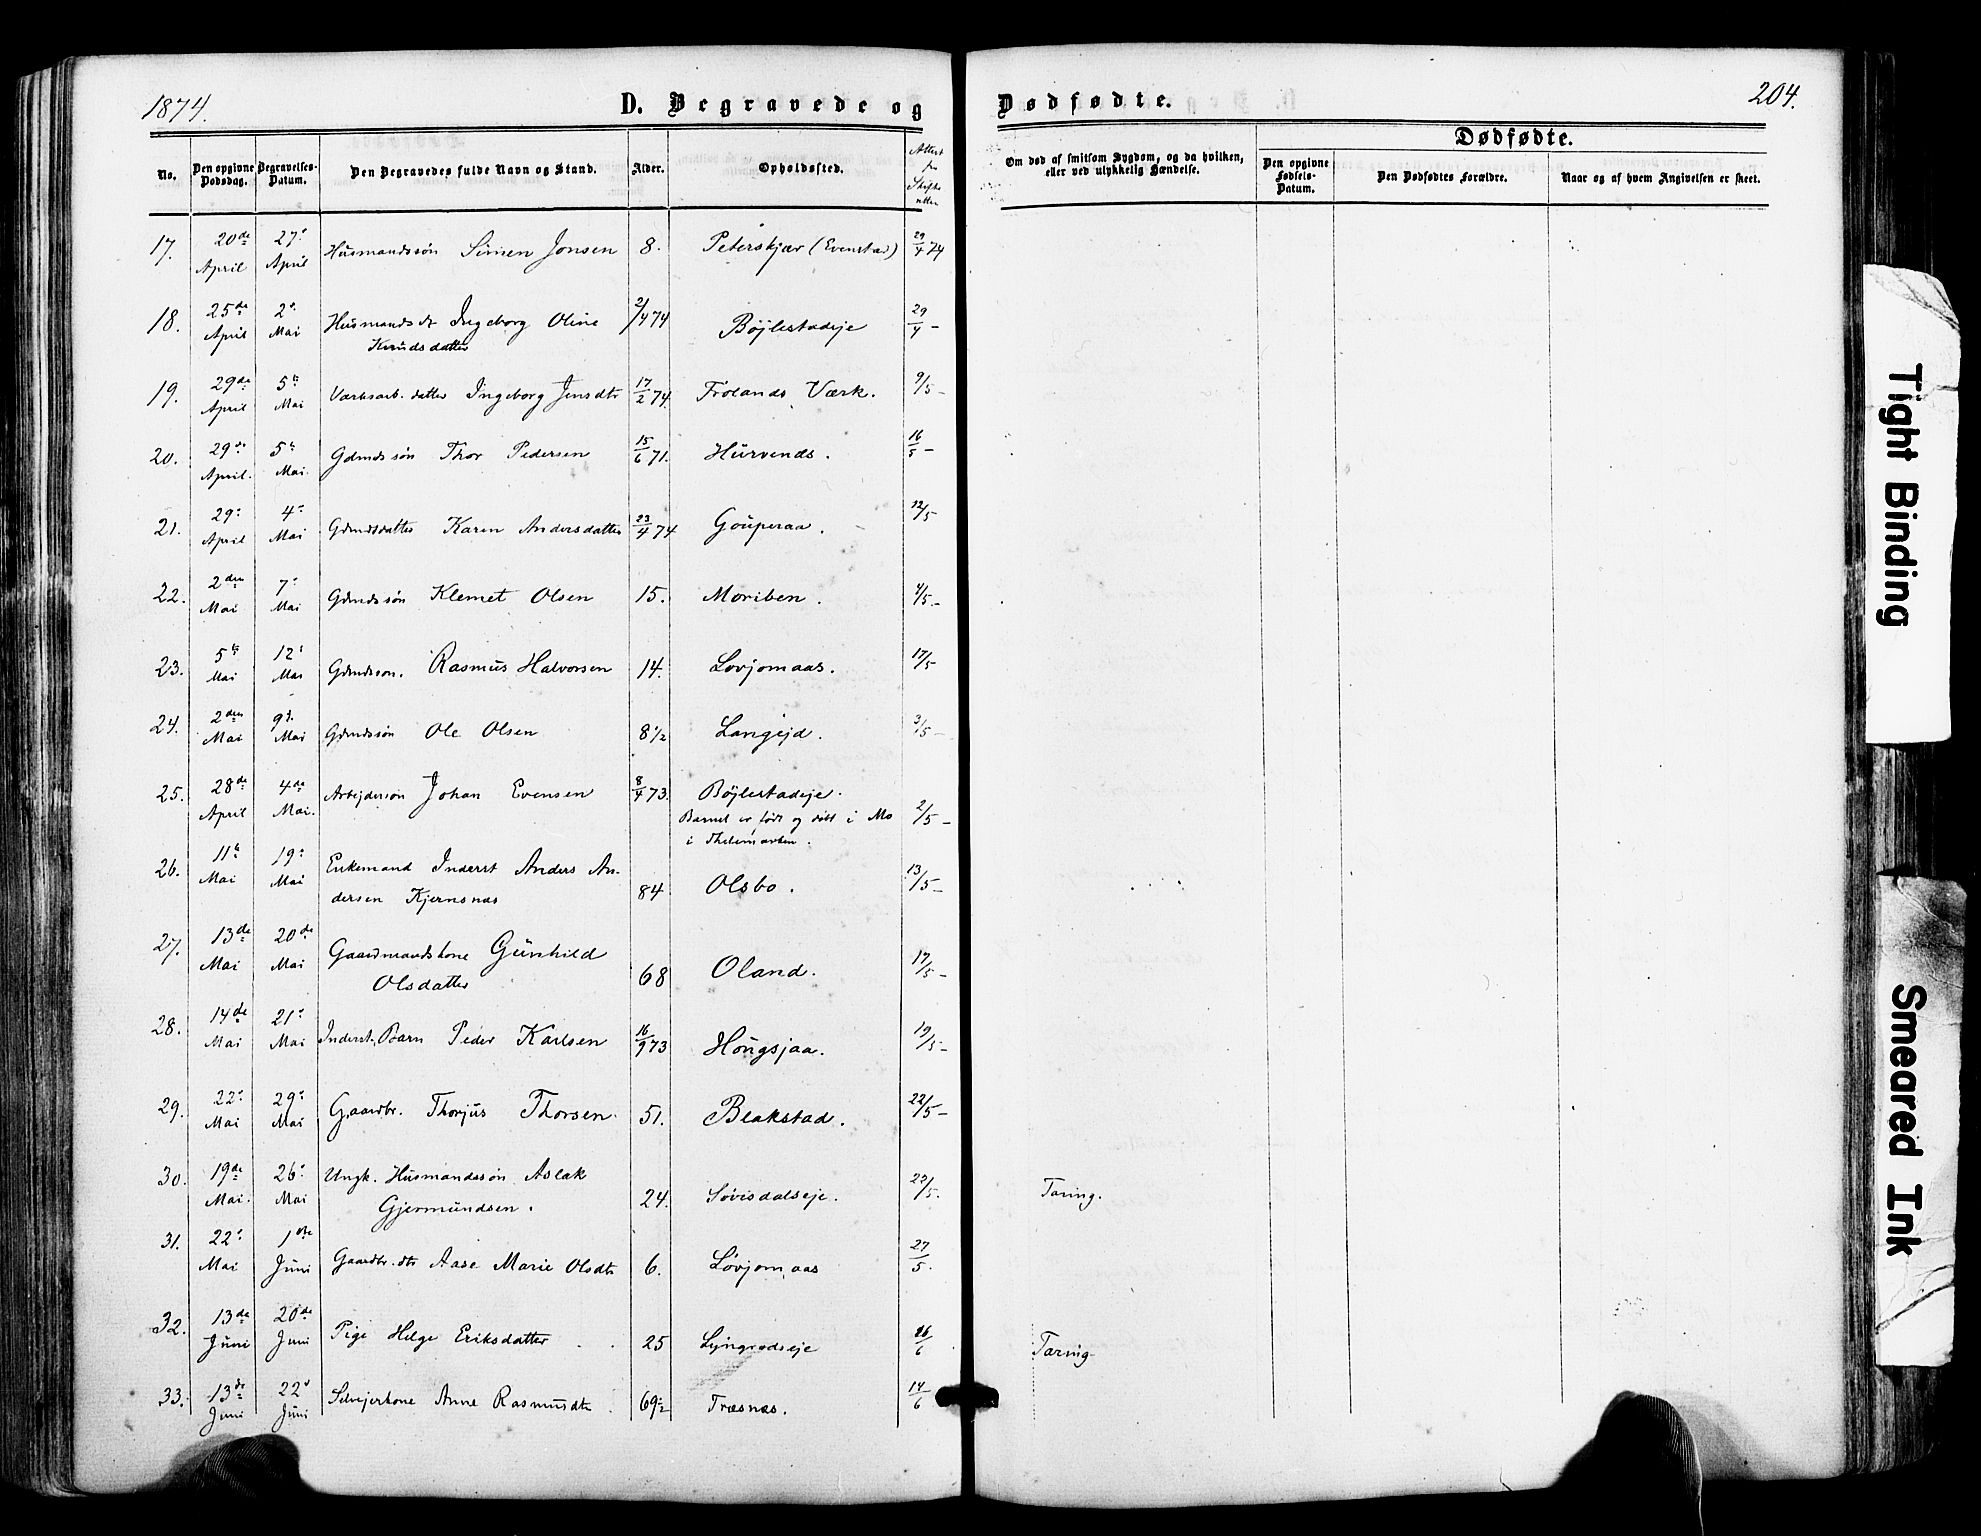 1874.
D. Begravede og Dødfødte.
204.
No.
Den opgivne Dødsdag.
Begravelses-Datum.
Den Begravedes fulde Navn og Stand.
Alder.
Opholdssted.
Attest fra Skifteretten
Om død af smitsom Sygdom, og da hvilken, eller ved ulykkelig Hændelse.
Dødfødte.
Den opgivne Fødsels-Datum.
Den Dødfødtes Forældre.
Naar og af hvem Angivelsen er skeet.
17. 20de April 27' April Husmandssøn Simen Jonsen 8. Peterskjær (Evenstad) 29/4 74
18. 25de April 2' Mai Husmandsdr Ingeborg Oline Knudsdatter 2/4 74 Böjlestadeje 29/4 -
19. 29de April 5te Mai Værksarb. datter Ingeborg Jensdtr 17/2 74. Frolands Værk. 9/5 -
20. 29de April. 5te Mai. Gdmdssön Thor Pedersen 15/6 71. Hurvends. 16/5 -
21. 29' April 4' Mai Gdmdsdatter Karen Andersdatter 23/4 74 Gouperaa. 12/5 -
22. 2den Mai 7' Mai Gdmdssön Klemet Olsen 15. Moriben. 4/5. -
23. 5te Mai 12' Mai Gdmdsson. Rasmus Halvorsen 14. Lovjomaas. 17/5
24. 2den Mai 9d. Mai Gdmdssön Ole Olsen 8 1/2 Langejd. 3/5 -
25. 28de April 4de Mai. Arbejdersøn Johan Evensen 8/4 73. Böjlestadeje. 2/5 -
Barnet er født og død i Mo
i Thelemarken.
26. 11te Mai 19' Mai Enkemand Inderst Anders Andersen Kjernsnæs 84 Olsbo. 13/5 -
27. 13de Mai 20de Mai Gaardmandskone Gunhild Olsdatter 68 Oland. 17/5 -
28. 14de Mai 21' Mai Inderst. Barn Peder Karlsen 16/9 73 Hougsjaa. 19/5 -
29. 22' Mai 29' Mai Gaardbr. Thorjus Thorsen. 51. Blakstad. 22/5 -
30. 19de Mai. 26' Mai Ungk. Husmandssön Aslak Gjermundsen. 24. Søvisdalseje. 23/5. Tæring.
31. 22' Mai 1ste Juni Gaardbr.dtr Aase Marie Olsdtr 6. Løvjomaas 27/5.
32. 13de Juni 20de Juni Pige Helge Eriksdatter 25 Lyngrødseje 16/6 Tæring
33. 13de Juni 22d Juni Selvejerkone Anne Rasmusdtr 69 1/2 Træsnæs. 14/6
Tight Binding
Smeared Ink